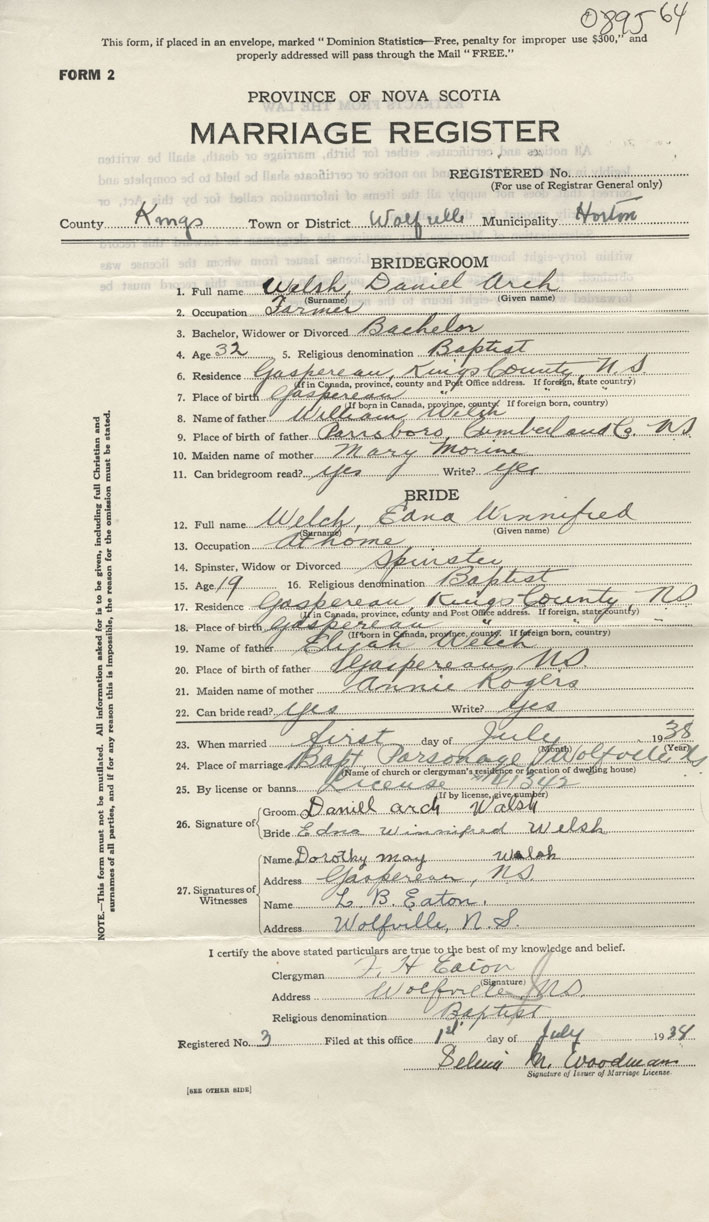 089564
This form, if placed in an envelope, marked "Dominion Statistics—Free, penalty for improper use $300," and
properly addressed will pass through the Mail "FREE."
FORM 2
PROVINCE OF NOVA SCOTIA
MARRIAGE REGISTER
REGISTERED No.
(For use of Registrar General only)
County Kings Town or District Wolfville Municipality Horton
BRIDEGROOM
1. Full name Walsh, Daniel Arch
(Surname) (Given name)
2. Occupation Farmer
3. Bachelor, Widower or Divorced Bachelor
4. Age 32 5. Religious denomination Baptist
6. Residence Gaspereau, Kings County, N.S.
(If in Canada, province, county and Post Office address. If foreign, state country)
7. Place of birth Gaspereau " "
(If born in Canada, province, county. If foreign born, country)
8. Name of father William Welsh
9. Place of birth of father Parrsboro, Cumberland Co. N.S
10. Maiden name of mother Mary Morine
11. Can bridegroom read? yes Write? yes
BRIDE
12. Full name Welch, Edna Winnifred
(Surname) (Given name)
13. Occupation At home
14. Spinster, Widow or Divorced Spinster
15. Age 19 16. Religious denomination Baptist
17. Residence Gaspereau, Kings County, NS
(If in Canada, province, county and Post Office address. If foreign, state country)
18. Place of birth Gaspereau " "
(If born in Canada, province, county. If foreign born, country)
19. Name of father Elijah Welch
20. Place of birth of father Gaspereau NS
21. Maiden name of mother Annie Rogers
22. Can bride read? yes Write? yes
23. When married first day of July 1938
(Month) (Year)
24. Place of marriage Bapt Parsonage, Wolfville NS
(Name of church or clergyman's residence or location of dwelling house)
25. By license or banns License 41342
(If by license, give number)
26. Signature of
Groom Daniel arch Walsh
Bride Edna Winnifred Welsh
27. Signatures of Witnesses
Name Dorothy may Walsh
Address Gaspereau, NS
Name L. B. Eaton.
Address Wolfville, N.S.
I certify the above stated particulars are true to the best of my knowledge and belief.
Clergyman H Eaton
(Signature)
Address Wolfville, NS
Religious denomination Baptist
Registered No. 3 Filed at this office 1st day of July 1938
M. Woodman
Signature of Issuer of Marriage License.
[SEE OTHER SIDE]
NOTE.—This form must not be mutilated. All information asked for is to be given, including full Christian and
surnames of all parties, and if for any reason this is impossible, the reason for the omission must be stated.